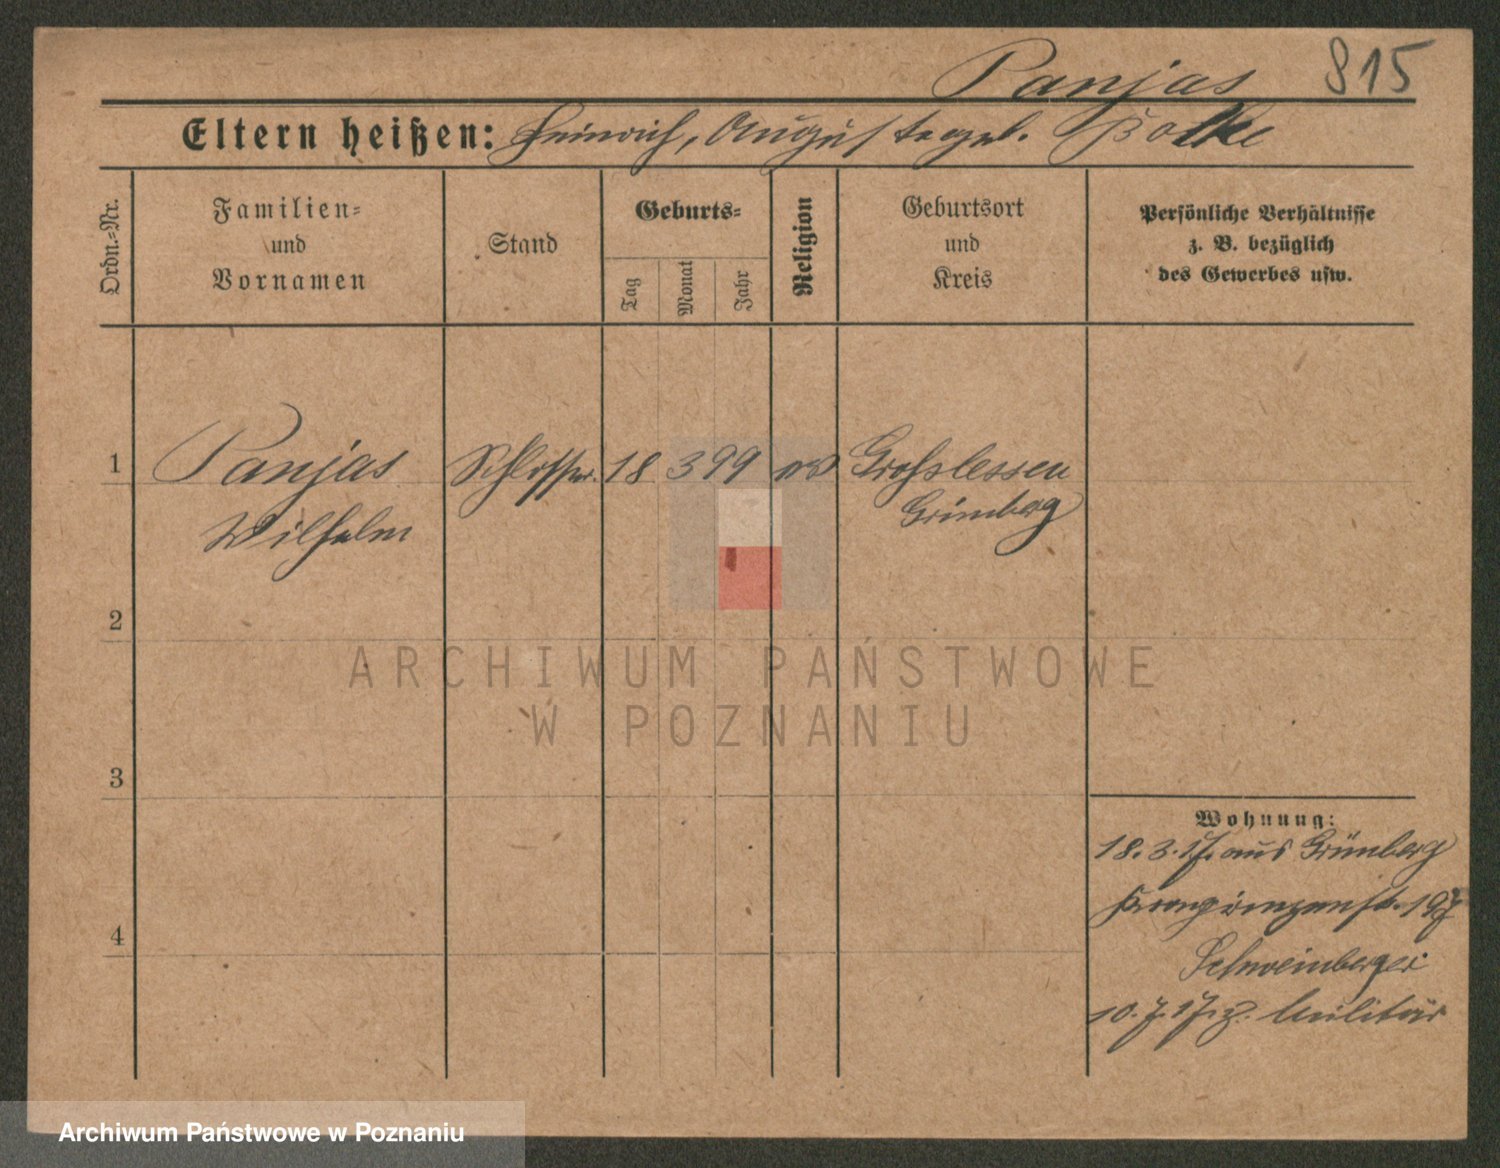 Panjas 815
Eltern heißen: Heinrich, Auguste geb. Bothe
Ordn.=Nr.
Familien=
und
Vornamen
Stand
Geburts=
Tag
Monat
Jahr
Religion
Geburtsort
und
Kreis
Persönliche Verhältnisse
z. B. bezüglich
des Gewerbes usw.
1 Panjas Schlosser 18 3 99 ev Grosslessen
Wilhelm Grünberg
2
ARCHIWUM PAŃSTWOWE
W POZNANIU
3
Wohnung:
18.3.17. aus Grünberg
Kronprinzenstr. 197
Schweinberger
4
10.7.17. z. Militär
Archiwum Państwowe w Poznaniu